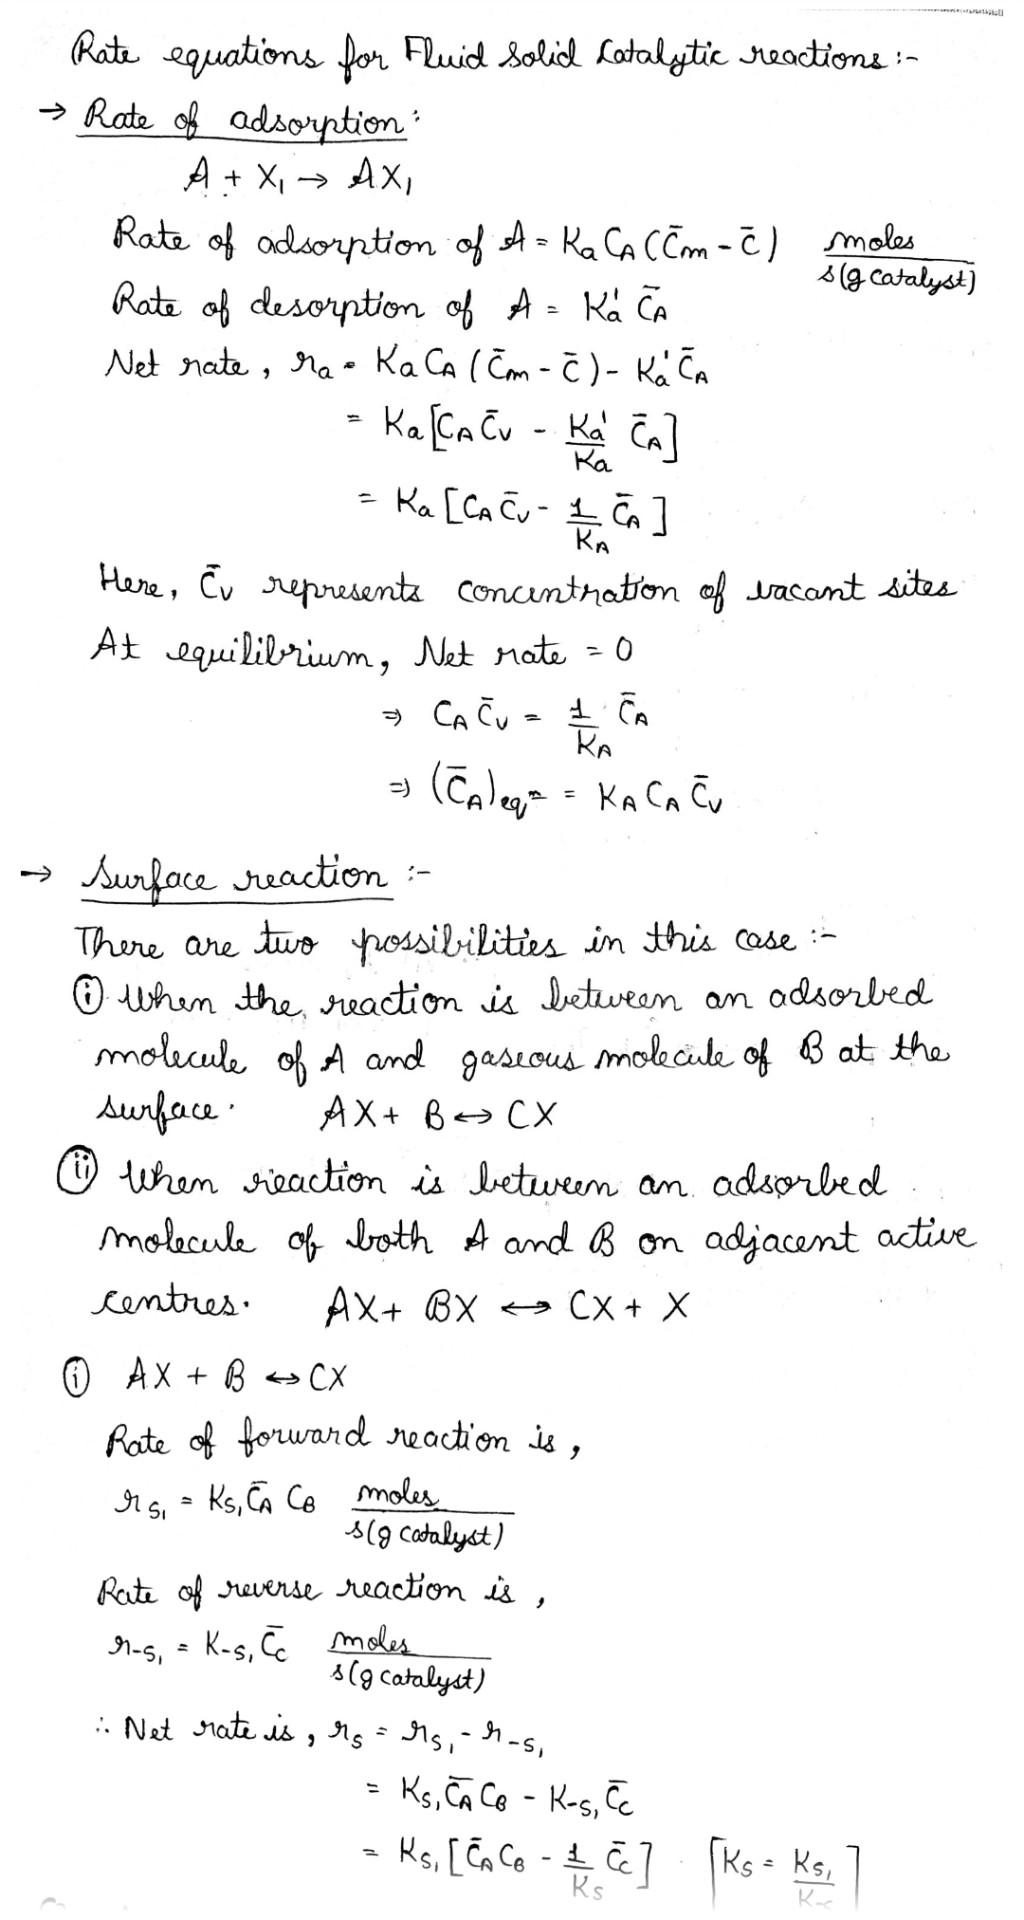 Rate equations for Fluid Solid Catalytic reactions :-
→ Rate of adsorption :
A + X₁ → AX₁
Rate of adsorption of A = Ka CA (C̄m - C̄) moles / s(g catalyst)
Rate of desorption of A = Ka' C̄A
Net rate, ra = Ka CA (C̄m - C̄) - Ka' C̄A
= Ka [CA C̄v - Ka'/Ka C̄A]
= Ka [CA C̄v - 1/KA C̄A]
Here, C̄v represents concentration of vacant sites
At equilibrium, Net rate = 0
⇒ CA C̄v = 1/KA C̄A
⇒ (C̄A)eqⁿ = KA CA C̄v
→ Surface reaction :-
There are two possibilities in this case :-
(i) When the reaction is between an adsorbed
molecule of A and gaseous molecule of B at the
surface. AX + B ↔ CX
(ii) When reaction is between an adsorbed
molecule of both A and B on adjacent active
centres. AX + BX ↔ CX + X
(i) AX + B ↔ CX
Rate of forward reaction is,
rs₁ = Ks₁ C̄A CB moles / s(g catalyst)
Rate of reverse reaction is,
r-s₁ = K-s₁ C̄c moles / s(g catalyst)
∴ Net rate is, rs = rs₁ - r-s₁
= Ks₁ C̄A CB - K-s₁ C̄c
= Ks₁ [C̄A CB - 1/Ks C̄c] [Ks = Ks₁/K-s]